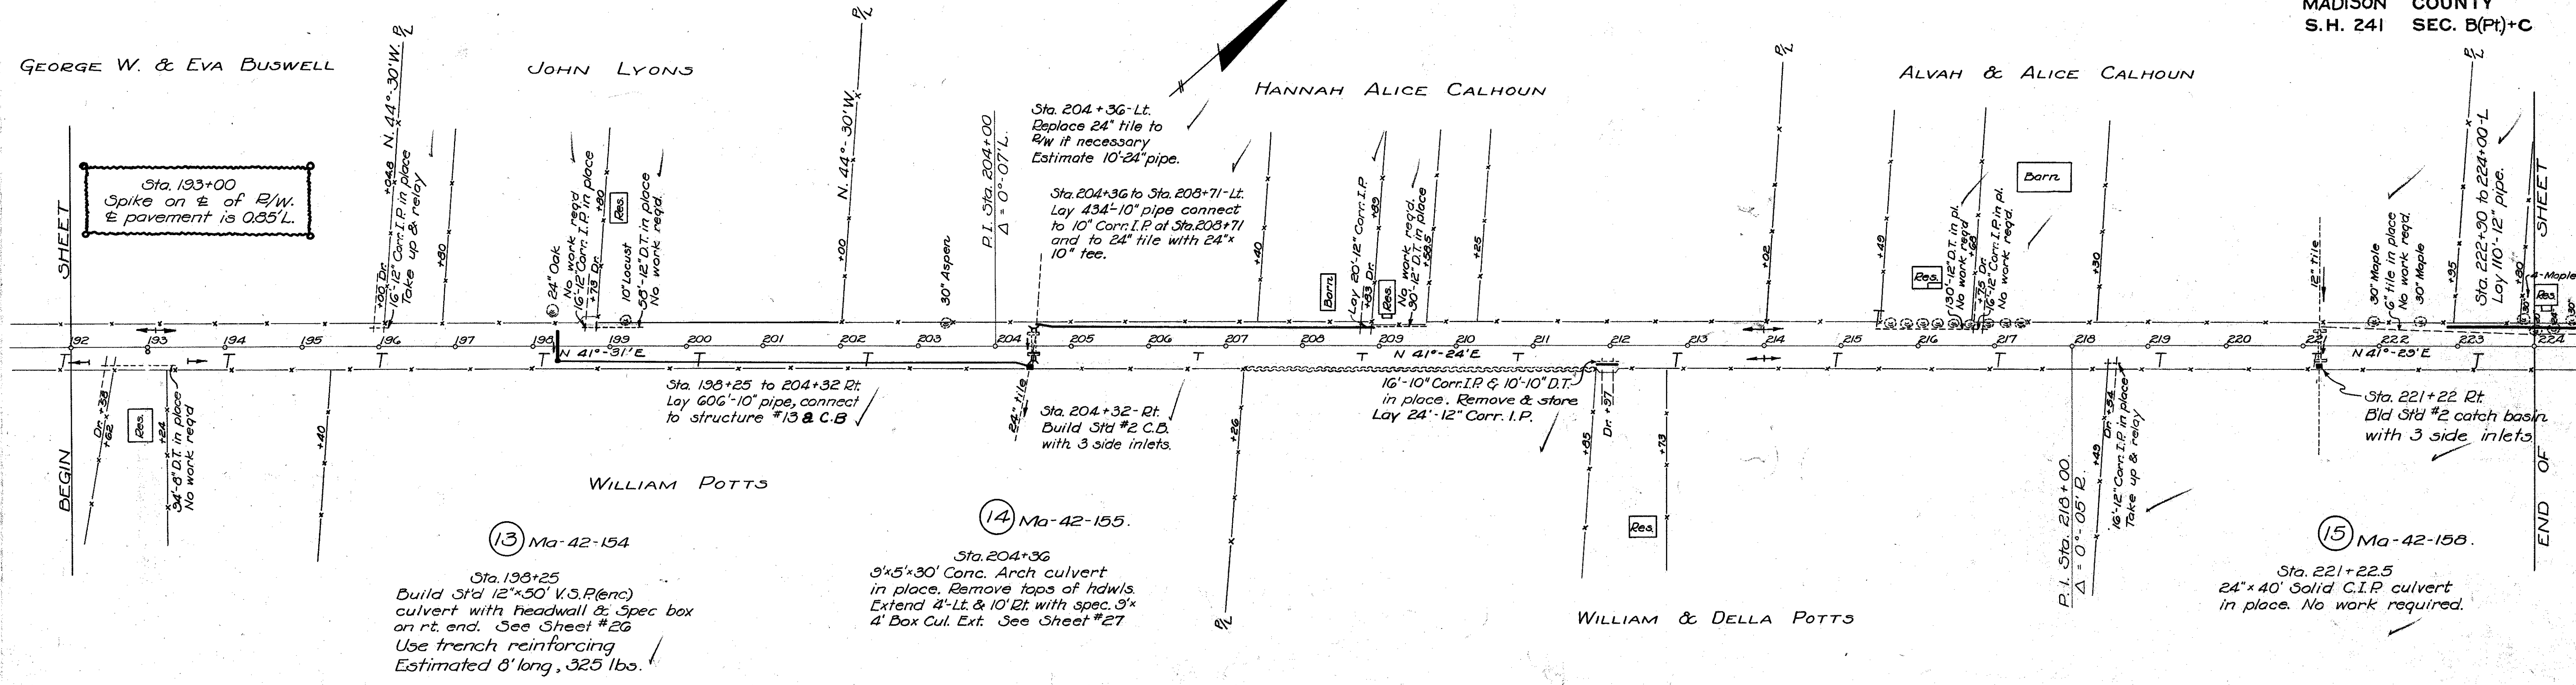 MADISON COUNTY
S.H. 241 SEC. B(Pt)+C
GEORGE W. & EVA BUSWELL
JOHN LYONS
HANNAH ALICE CALHOUN
ALVAH & ALICE CALHOUN
SHEET
BEGIN
Sta. 193+00
Spike on ℄ of R/W.
℄ pavement is 0.85'L.
N. 44°-30'W. P/L
+04.8
+00 Dr.
16'-12" Corr. I.P. in place
Take up & relay
+80
24" Oak
No work req'd
16'-12" Corr. I.P. in place
+78 Dr.
+80
Res.
10" Locust
58'-12" D.T. in place
No work req'd.
P/L
N. 44°-30'W.
+00
30" Aspen
P.I. Sta. 204+00
Δ = 0°-07' L.
Sta. 204+36-Lt.
Replace 24" tile to
R/W if necessary
Estimate 10'-24" pipe.
Sta. 204+36 to Sta. 208+71-Lt.
Lay 434'-10" pipe connect
to 10" Corr. I.P. at Sta. 208+71
and to 24" tile with 24"x
10" tee.
+40
Barn
Lay 20'-12" Corr. I.P.
+83 Dr.
+89
Res.
No work req'd.
90'-12" D.T. in place
+58.5
+25
P/L
+02
+49
Res.
130'-12" D.T. in pl.
No work req'd
+75 Dr.
+68
16'-12" Corr. I.P. in pl.
No work req'd.
Barn
+30
12" tile
30" Maple
6" tile in place
No work req'd.
30" Maple
P/L
+95
Sta. 222+90 to 224+00-L
Lay 110'-12" pipe.
+80
4-Maple
Res.
SHEET
END OF
192 193 194 195 196 197 198 199 200 201 202 203 204 205 206 207 208 209 210 211 212 213 214 215 216 217 218 219 220 221 222 223 224
N 41°-31'E
N 41°-24'E
N 41°-29'E
Dr. +38
+62
Res.
+24
94'-8" D.T. in place
No work req'd
+40
Sta. 198+25 to 204+32 Rt.
Lay 606'-10" pipe, connect
to structure #13 & C.B
24" tile
Sta. 204+32-Rt.
Build Std #2 C.B.
with 3 side inlets.
+26
P/L
16'-10" Corr. I.P. & 10'-10" D.T.
in place. Remove & store
Lay 24'-12" Corr. I.P.
+85
Dr. +97
+73
Res.
P.I. Sta. 218+00.
Δ = 0°-05' R.
+49
Dr. +54
16'-12" Corr. I.P. in place
Take up & relay
Sta. 221+22 Rt.
Bld Std #2 catch basin
with 3 side inlets.
WILLIAM POTTS
WILLIAM & DELLA POTTS
13 Ma-42-154
Sta. 198+25
Build St'd 12"x50' V.S.P.(enc)
culvert with headwall & Spec box
on rt. end. See Sheet #26
Use trench reinforcing
Estimated 8' long, 325 lbs.
14 Ma-42-155.
Sta. 204+36
9'x5'x30' Conc. Arch culvert
in place. Remove tops of hdwls.
Extend 4'-Lt. & 10' Rt. with spec. 9'x
4' Box Cul. Ext. See Sheet #27
15 Ma-42-158.
Sta. 221+22.5
24"x40' Solid C.I.P. culvert
in place. No work required.